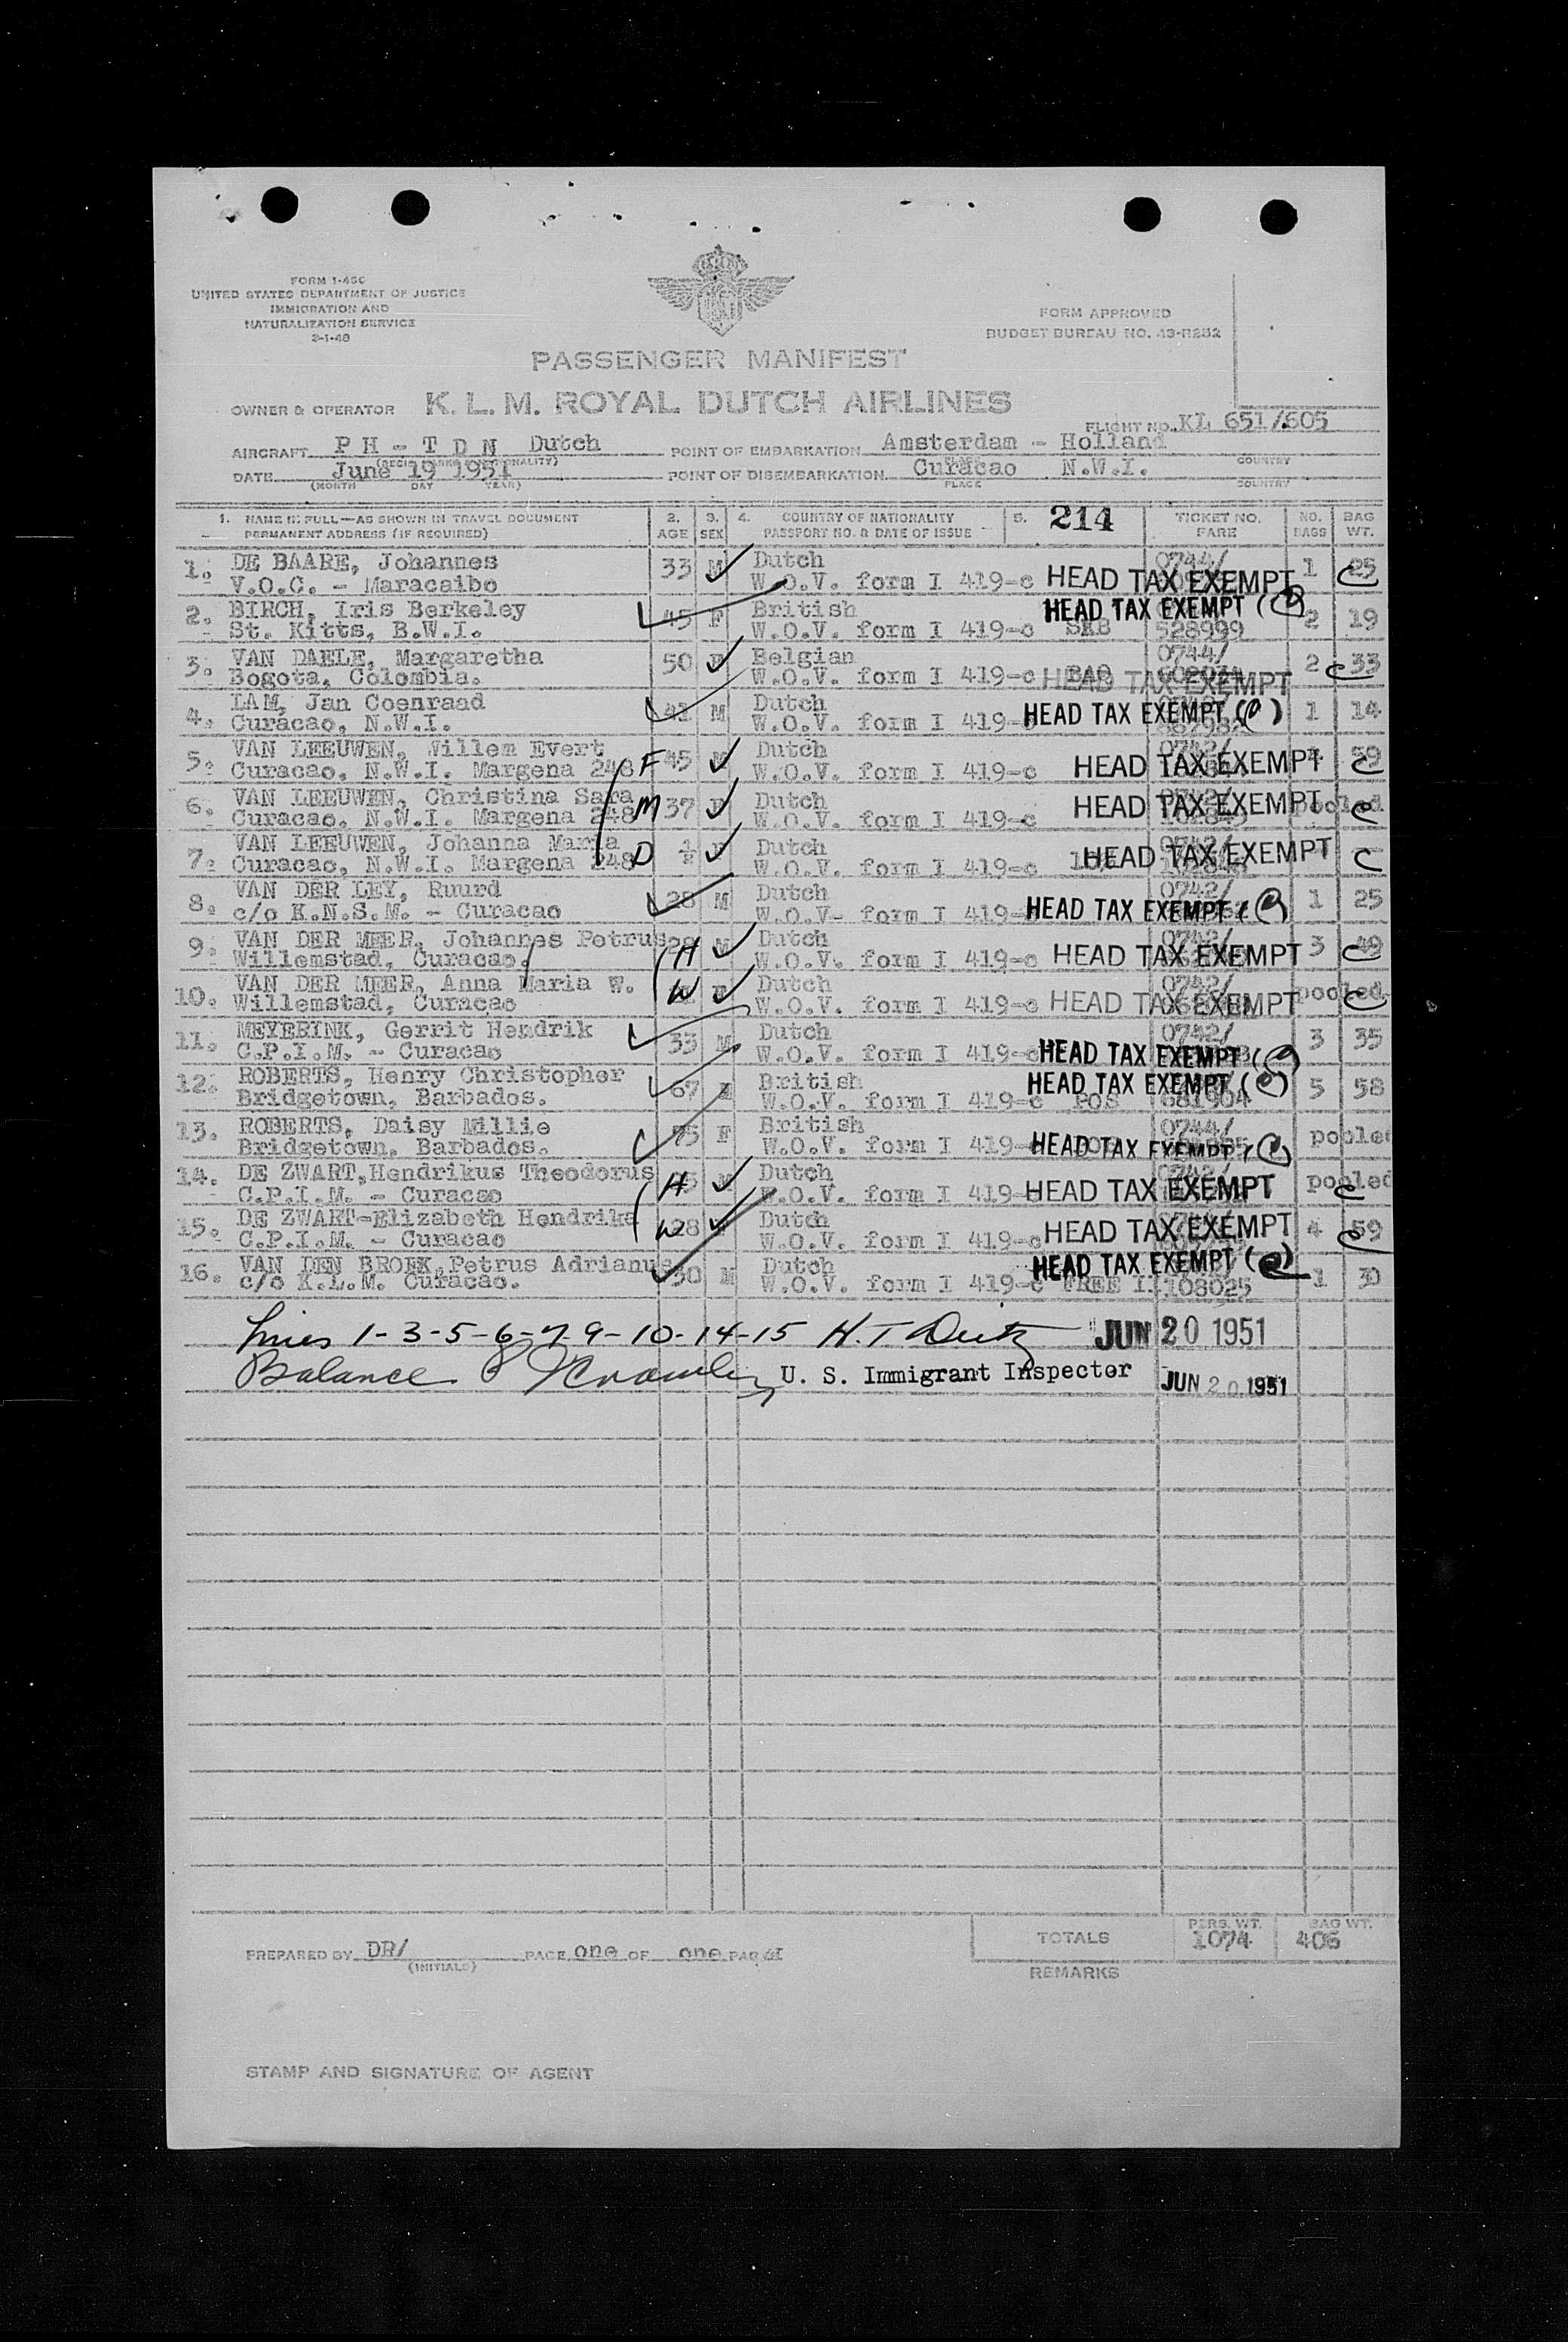 FORM I-466
UNITED STATES DEPARTMENT OF JUSTICE
IMMIGRATION AND
NATURALIZATION SERVICE
FORM APPROVED
BUDGET BUREAU NO. 43-R252
PASSENGER MANIFEST
OWNER & OPERATOR K. L. M. ROYAL DUTCH AIRLINES
FLIGHT NO. KL 651/605
AIRCRAFT PH - TDN Dutch POINT OF EMBARKATION Amsterdam - Holland
DATE June 19 1951 POINT OF DISEMBARKATION Curacao N.W.I.
(MONTH DAY YEAR) PLACE COUNTRY
1. NAME IN FULL—AS SHOWN IN TRAVEL DOCUMENT 2. 3. 4. COUNTRY OF NATIONALITY 5. 214 TICKET NO. NO. BAG
PERMANENT ADDRESS (IF REQUIRED) AGE SEX PASSPORT NO. & DATE OF ISSUE FARE BAGS WT.
1. DE BAARE, Johannes 33 M Dutch 0744/ 1 25
V.O.C. - Maracaibo W.O.V. form I 419-c HEAD TAX EXEMPT C
2. BIRCH, Iris Berkeley 45 F British HEAD TAX EXEMPT 2 19
St. Kitts, B.W.I. W.O.V. form I 419-c SKB 528999
3. VAN DAELE, Margaretha 50 F Belgian 0744/ 2 33
Bogota, Colombia. W.O.V. form I 419-c HEAD TAX EXEMPT C
4. LAM, Jan Coenraad 41 M Dutch 1 14
Curacao, N.W.I. W.O.V. form I 419-c HEAD TAX EXEMPT
5. VAN LEEUWEN, Willem Evert F 45 M Dutch 0742/ 4 59
Curacao, N.W.I. Margena 248 W.O.V. form I 419-c HEAD TAX EXEMPT C
6. VAN LEEUWEN, Christina Sara M 37 F Dutch 0742/ pooled
Curacao, N.W.I. Margena 248 W.O.V. form I 419-c HEAD TAX EXEMPT C
7. VAN LEEUWEN, Johanna Maria D F Dutch 0742/
Curacao, N.W.I. Margena 248 W.O.V. form I 419-c HEAD TAX EXEMPT C
8. VAN DER LEY, Ruurd 28 M Dutch 0742/ 1 25
c/o K.N.S.M. - Curacao W.O.V- form I 419- HEAD TAX EXEMPT
9. VAN DER MEER, Johannes Petrus H M Dutch 0742/ 3 49
Willemstad, Curacao. W.O.V. form I 419-c HEAD TAX EXEMPT C
10. VAN DER MEER, Anna Maria W. W F Dutch 0742/ pooled
Willemstad, Curacao W.O.V. form I 419-c HEAD TAX EXEMPT C
11. MEYERINK, Gerrit Hendrik 33 M Dutch 0742/ 3 35
C.P.I.M. - Curacao W.O.V. form I 419-c HEAD TAX EXEMPT
12. ROBERTS, Henry Christopher 67 M British HEAD TAX EXEMPT 5 58
Bridgetown, Barbados. W.O.V. form I 419-c POS 681904
13. ROBERTS, Daisy Millie 75 F British 0744/ pooled
Bridgetown, Barbados. W.O.V. form I 419- HEAD TAX EXEMPT
14. DE ZWART, Hendrikus Theodorus H M Dutch 0742/ pooled
C.P.I.M. - Curacao W.O.V. form I 419- HEAD TAX EXEMPT C
15. DE ZWART-Elizabeth Hendrika W 28 F Dutch 4 59
C.P.I.M. - Curacao W.O.V. form I 419-c HEAD TAX EXEMPT C
16. VAN DEN BROEK, Petrus Adrianus 30 M Dutch HEAD TAX EXEMPT 1 30
c/o K.L.M. Curacao. W.O.V. form I 419-c FREE 108025
Lines 1-3-5-6-7-9-10-14-15 H.T. JUN 20 1951
Balance U. S. Immigrant Inspector JUN 20 1951
TOTALS PERS. WT. 1074 BAG WT. 406
PREPARED BY DR/ (INITIALS) PAGE one OF one PAGES
REMARKS
STAMP AND SIGNATURE OF AGENT